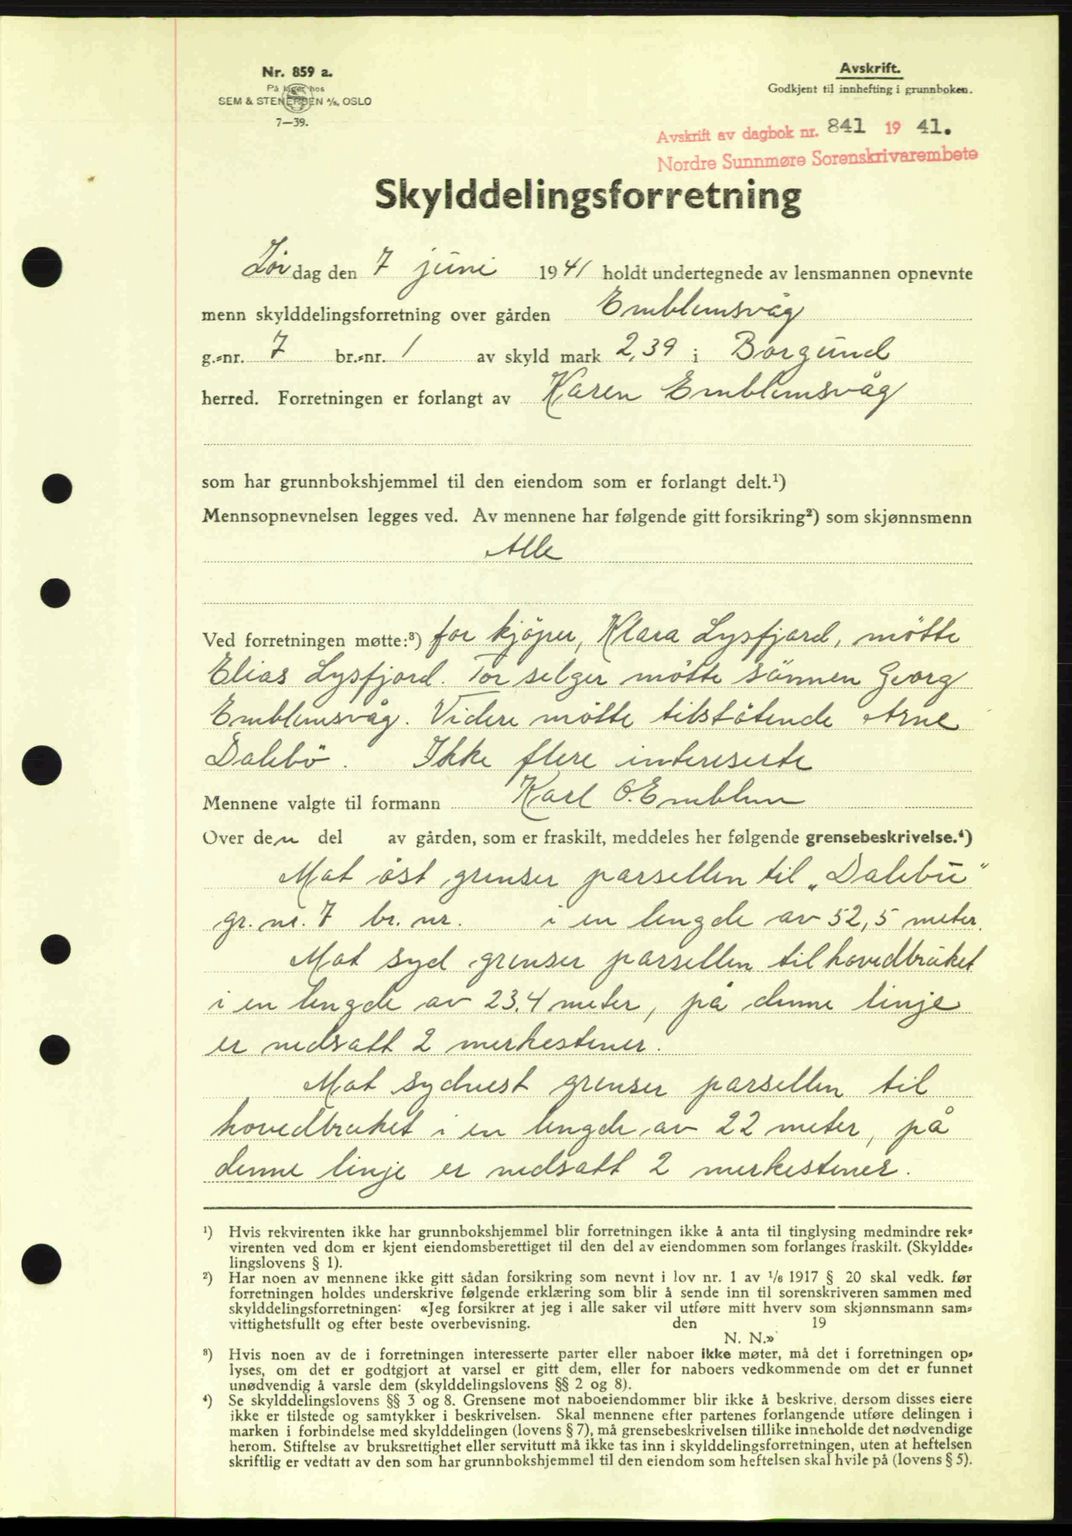 Nr. 859 a.
På lager hos
SEM & STENERSEN A/S, OSLO
7—39.
Avskrift.
Godkjent til innhefting i grunnboken.
Avskrift av dagbok nr. 841 19 41.
Nordre Sunnmøre Sorenskrivarembete
Skylddelingsforretning
Lørdag den 7 juni 1941 holdt undertegnede av lensmannen opnevnte
menn skylddelingsforretning over gården Emblemsvåg
g.-nr. 7 br.-nr. 1 av skyld mark 2,39 i Borgund
herred. Forretningen er forlangt av Karen Emblemsvåg
som har grunnbokshjemmel til den eiendom som er forlangt delt.¹)
Mennsopnevnelsen legges ved. Av mennene har følgende gitt forsikring²) som skjønnsmenn
Alle
Ved forretningen møtte:³) for kjöper, Klara Lysfjord, mötte
Elias Lysfjord. For selger mötte sönnen Georg
Emblemsvåg. Videre mötte tilstötende Arne
Dalebö. Ikke flere intereserte
Mennene valgte til formann Karl O. Emblem
Over den del av gården, som er fraskilt, meddeles her følgende grensebeskrivelse.⁴)
Mot öst grenser parsellen til „Dalebu"
gr. nr. 7 br. nr. i en lengde av 52,5 meter.
Mot syd grenser parsellen til hovedbruket
i en lengde av 23.4 meter, på denne linje
er nedsatt 2 merkestener.
Mot sydvest grenser parsellen til
hovedbruket i en lengde av 22 meter, på
denne linje er nedsatt 2 merkestener.
¹) Hvis rekvirenten ikke har grunnbokshjemmel blir forretningen ikke å anta til tinglysing medmindre rek-
virenten ved dom er kjent eiendomsberettiget til den del av eiendommen som forlanges fraskilt. (Skyldde-
lingslovens § 1).
²) Har noen av mennene ikke gitt sådan forsikring som nevnt i lov nr. 1 av 1/6 1917 § 20 skal vedk. før
forretningen holdes underskrive følgende erklæring som blir å sende inn til sorenskriveren sammen med
skylddelingsforretningen: «Jeg forsikrer at jeg i alle saker vil utføre mitt hverv som skjønnsmann sam-
vittighetsfullt og efter beste overbevisning. den 19
N. N.»
³) Hvis noen av de i forretningen interesserte parter eller naboer ikke møter, må det i forretningen op-
lyses, om det er godtgjort at varsel er gitt dem, eller for naboers vedkommende om det er funnet
unødvendig å varsle dem (skylddelingslovens §§ 2 og 8).
⁴) Se skylddelingslovens §§ 3 og 8. Grensene mot naboeiendommer blir ikke å beskrive, dersom disses eiere
ikke er tilstede og samtykker i beskrivelsen. Skal mennene efter partenes forlangende utføre delingen i
marken i forbindelse med skylddelingen (lovens § 7), må grensebeskrivelsen tillike inneholde det nødvendige
herom. Stiftelse av bruksrettighet eller servitutt må ikke tas inn i skylddelingsforretningen, uten at heftelsen
skriftlig er vedtatt av den som har grunnbokshjemmel til den eiendom som heftelsen skal hvile på (lovens § 5).